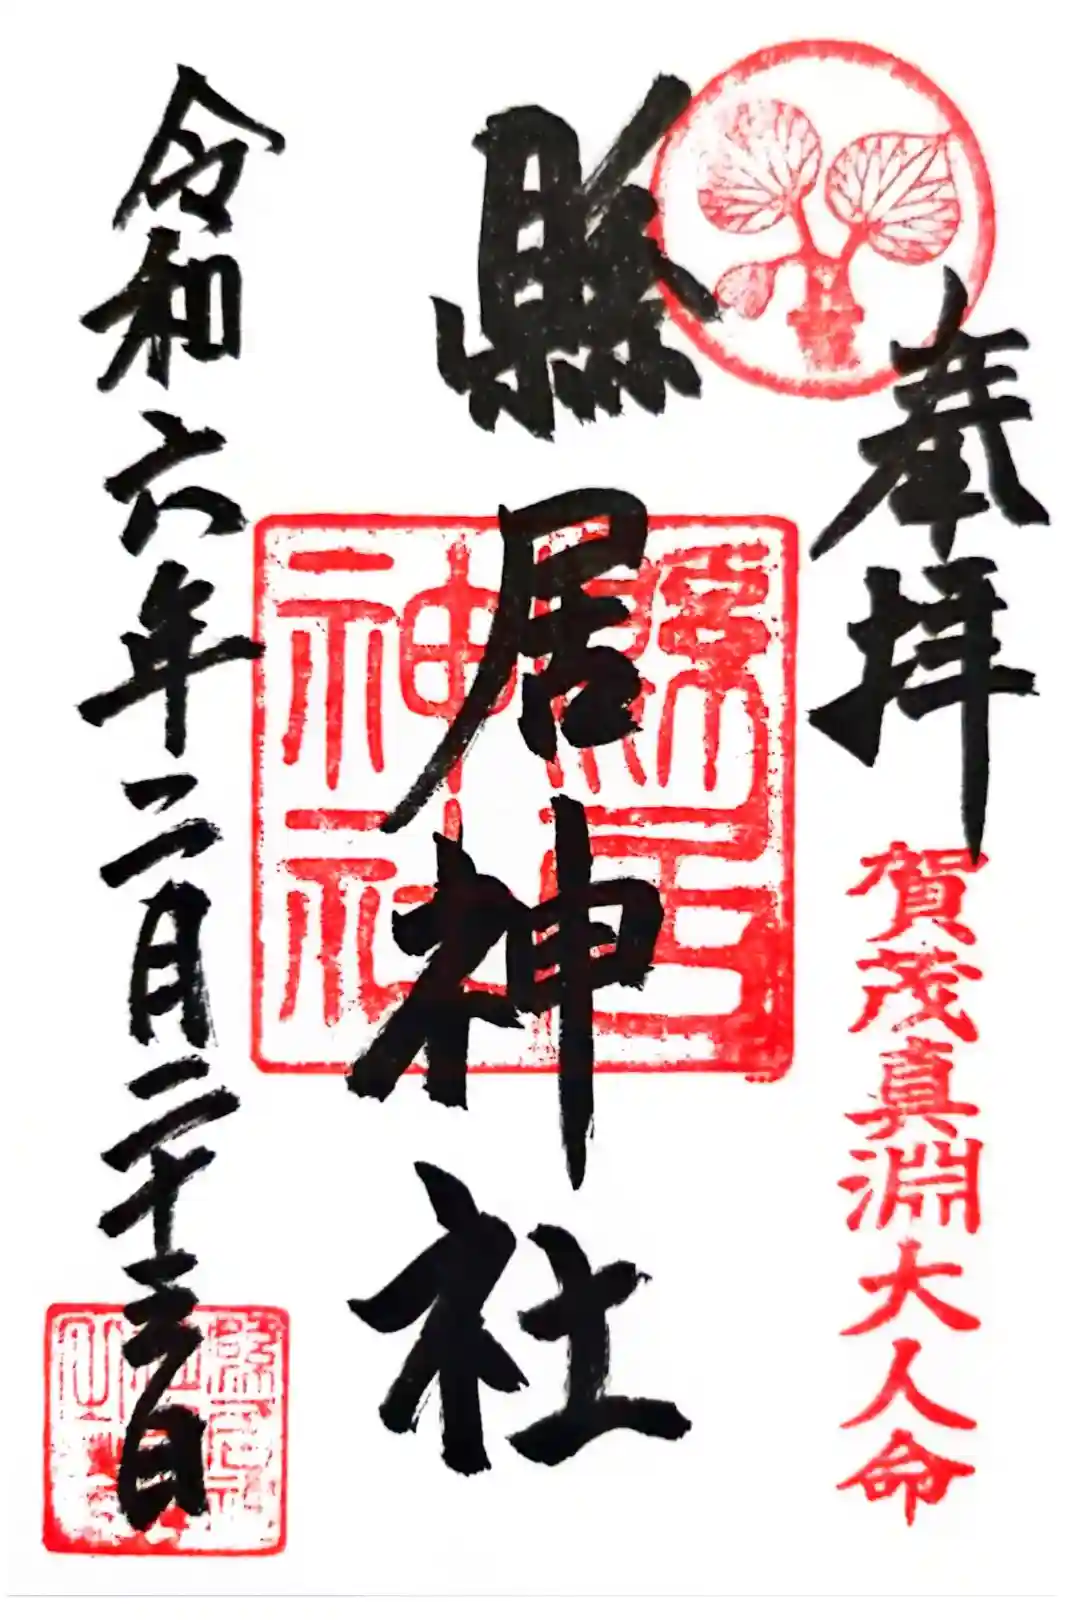 奉拝
賀茂真淵大人命
縣居神社
縣居
神社
令和六年二月二十三日